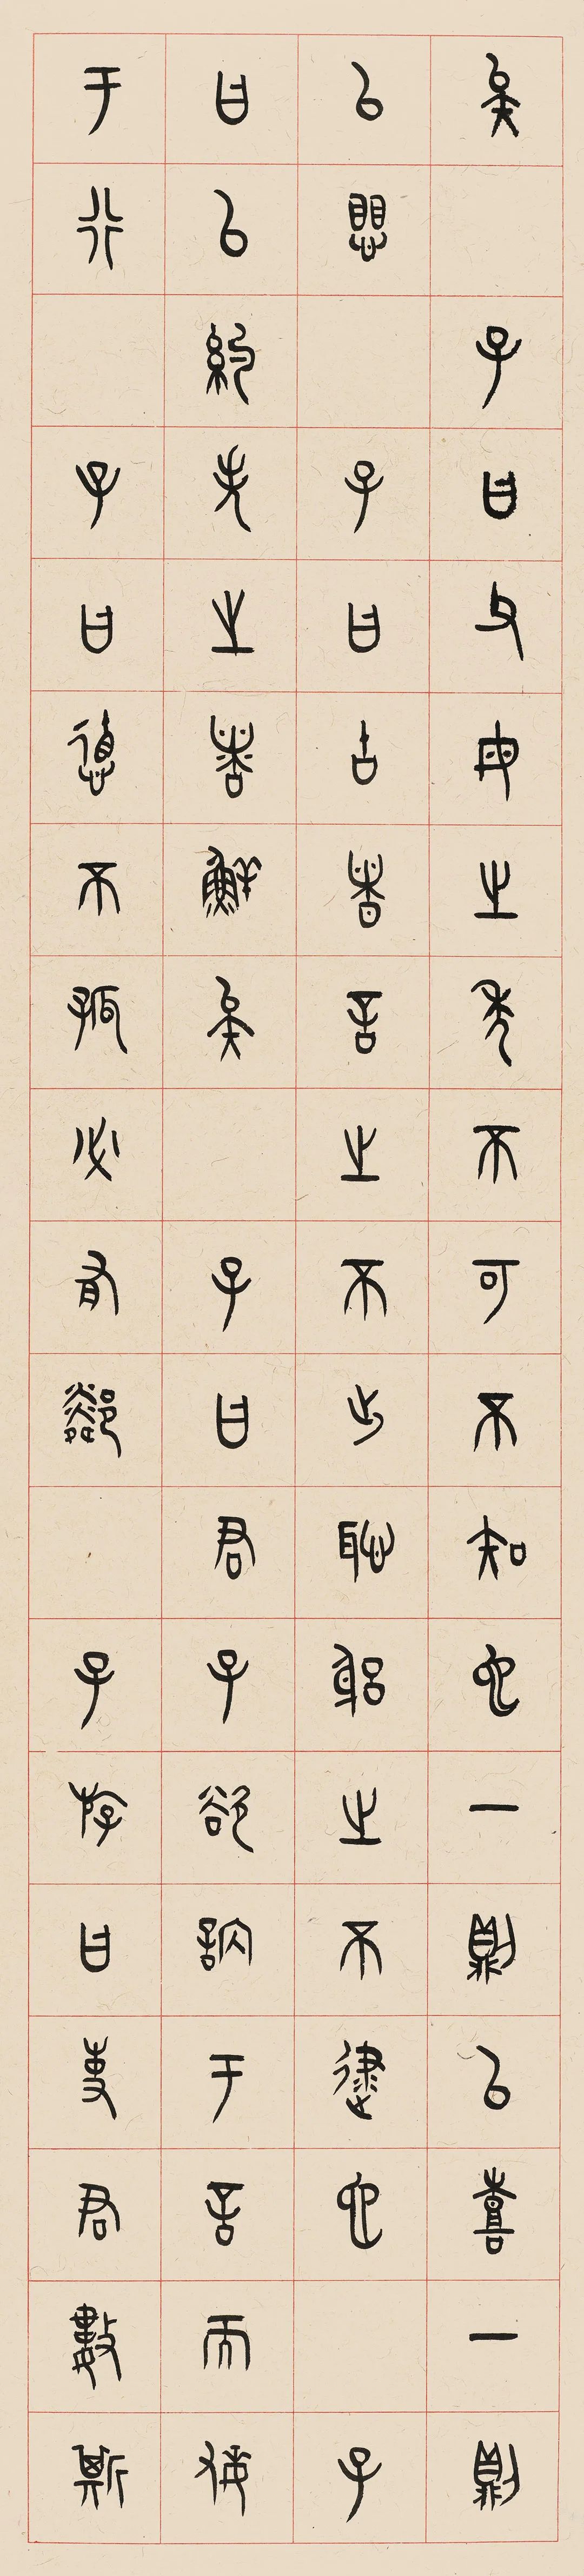 矣 子曰父母之年不可不知也一則以喜一則
以懼 子曰古者言之不出恥躬之不逮也 子
曰以約失之者鮮矣 子曰君子欲訥于言而敏
于行 子曰德不孤必有鄰 子游曰事君數斯